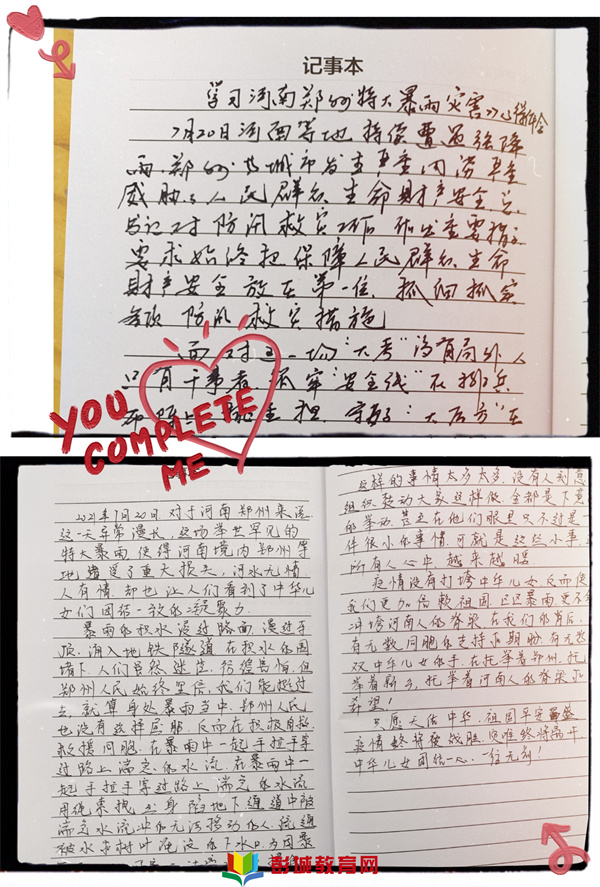 记事本
学习河南郑州特大暴雨灾害
7月20日河南等地持续遭遇强降
雨,郑州等城市发生严重内涝,严重
威胁了人民群众生命财产安全,总
书记对防汛救灾工作作出重要指示
要求始终把保障人民群众生命
财产安全放在第一位,抓细抓实
各项防汛救灾措施
面对这一场“大考”没有局外人
只有干事者,抓牢“安全线”在
YOU
COMPLETE
ME
2021年7月20日对于河南郑州来说
这一天异常漫长,这场举世罕见的
特大暴雨,使得河南境内郑州等
地遭受了重大损失,河水无情
人有情,却也让人们看到了中华儿
女们团结一致的凝聚力
暴雨的积水漫过路面,漫过手
涌入地铁隧道在积水的围
堵下,人们虽然迷茫,彷徨害怕,但
郑州人民始终坚信,我们能挺过
去,就算身处暴雨当中,郑州人民
也没有选择屈服,反而在积极自救
救援同胞,在暴雨中一起手拉手穿
过路上湍急的水流,在暴雨中一
起手拉手穿过路上湍急的水流
用绳索拽出身陷地下通道中被
湍急水流冲的无法移动的人,疏通
被水里树叶淹没的下水口,为因暴
这样的事情太多太多,没有人刻意
组织鼓动大家这样做,全都是下意
的举动,甚至在他们眼里只不过是一
件很小的事情,可就是这些小事
所有人心中越来越暖
疫情没有打垮中华儿女反而使
我们更加信赖祖国,区区暴雨更不会
冲垮河南人的脊梁,在我们的背后
有无数同胞的支持和期盼,有无数
双中华儿女的手,在托举着郑州,托
举着新乡,托举着河南人的脊梁和
希望!
只愿天佑中华,祖国平安
疫情终将被战胜,灾难终将离开
中华儿女团结一心,一往无前!
彭城教育网